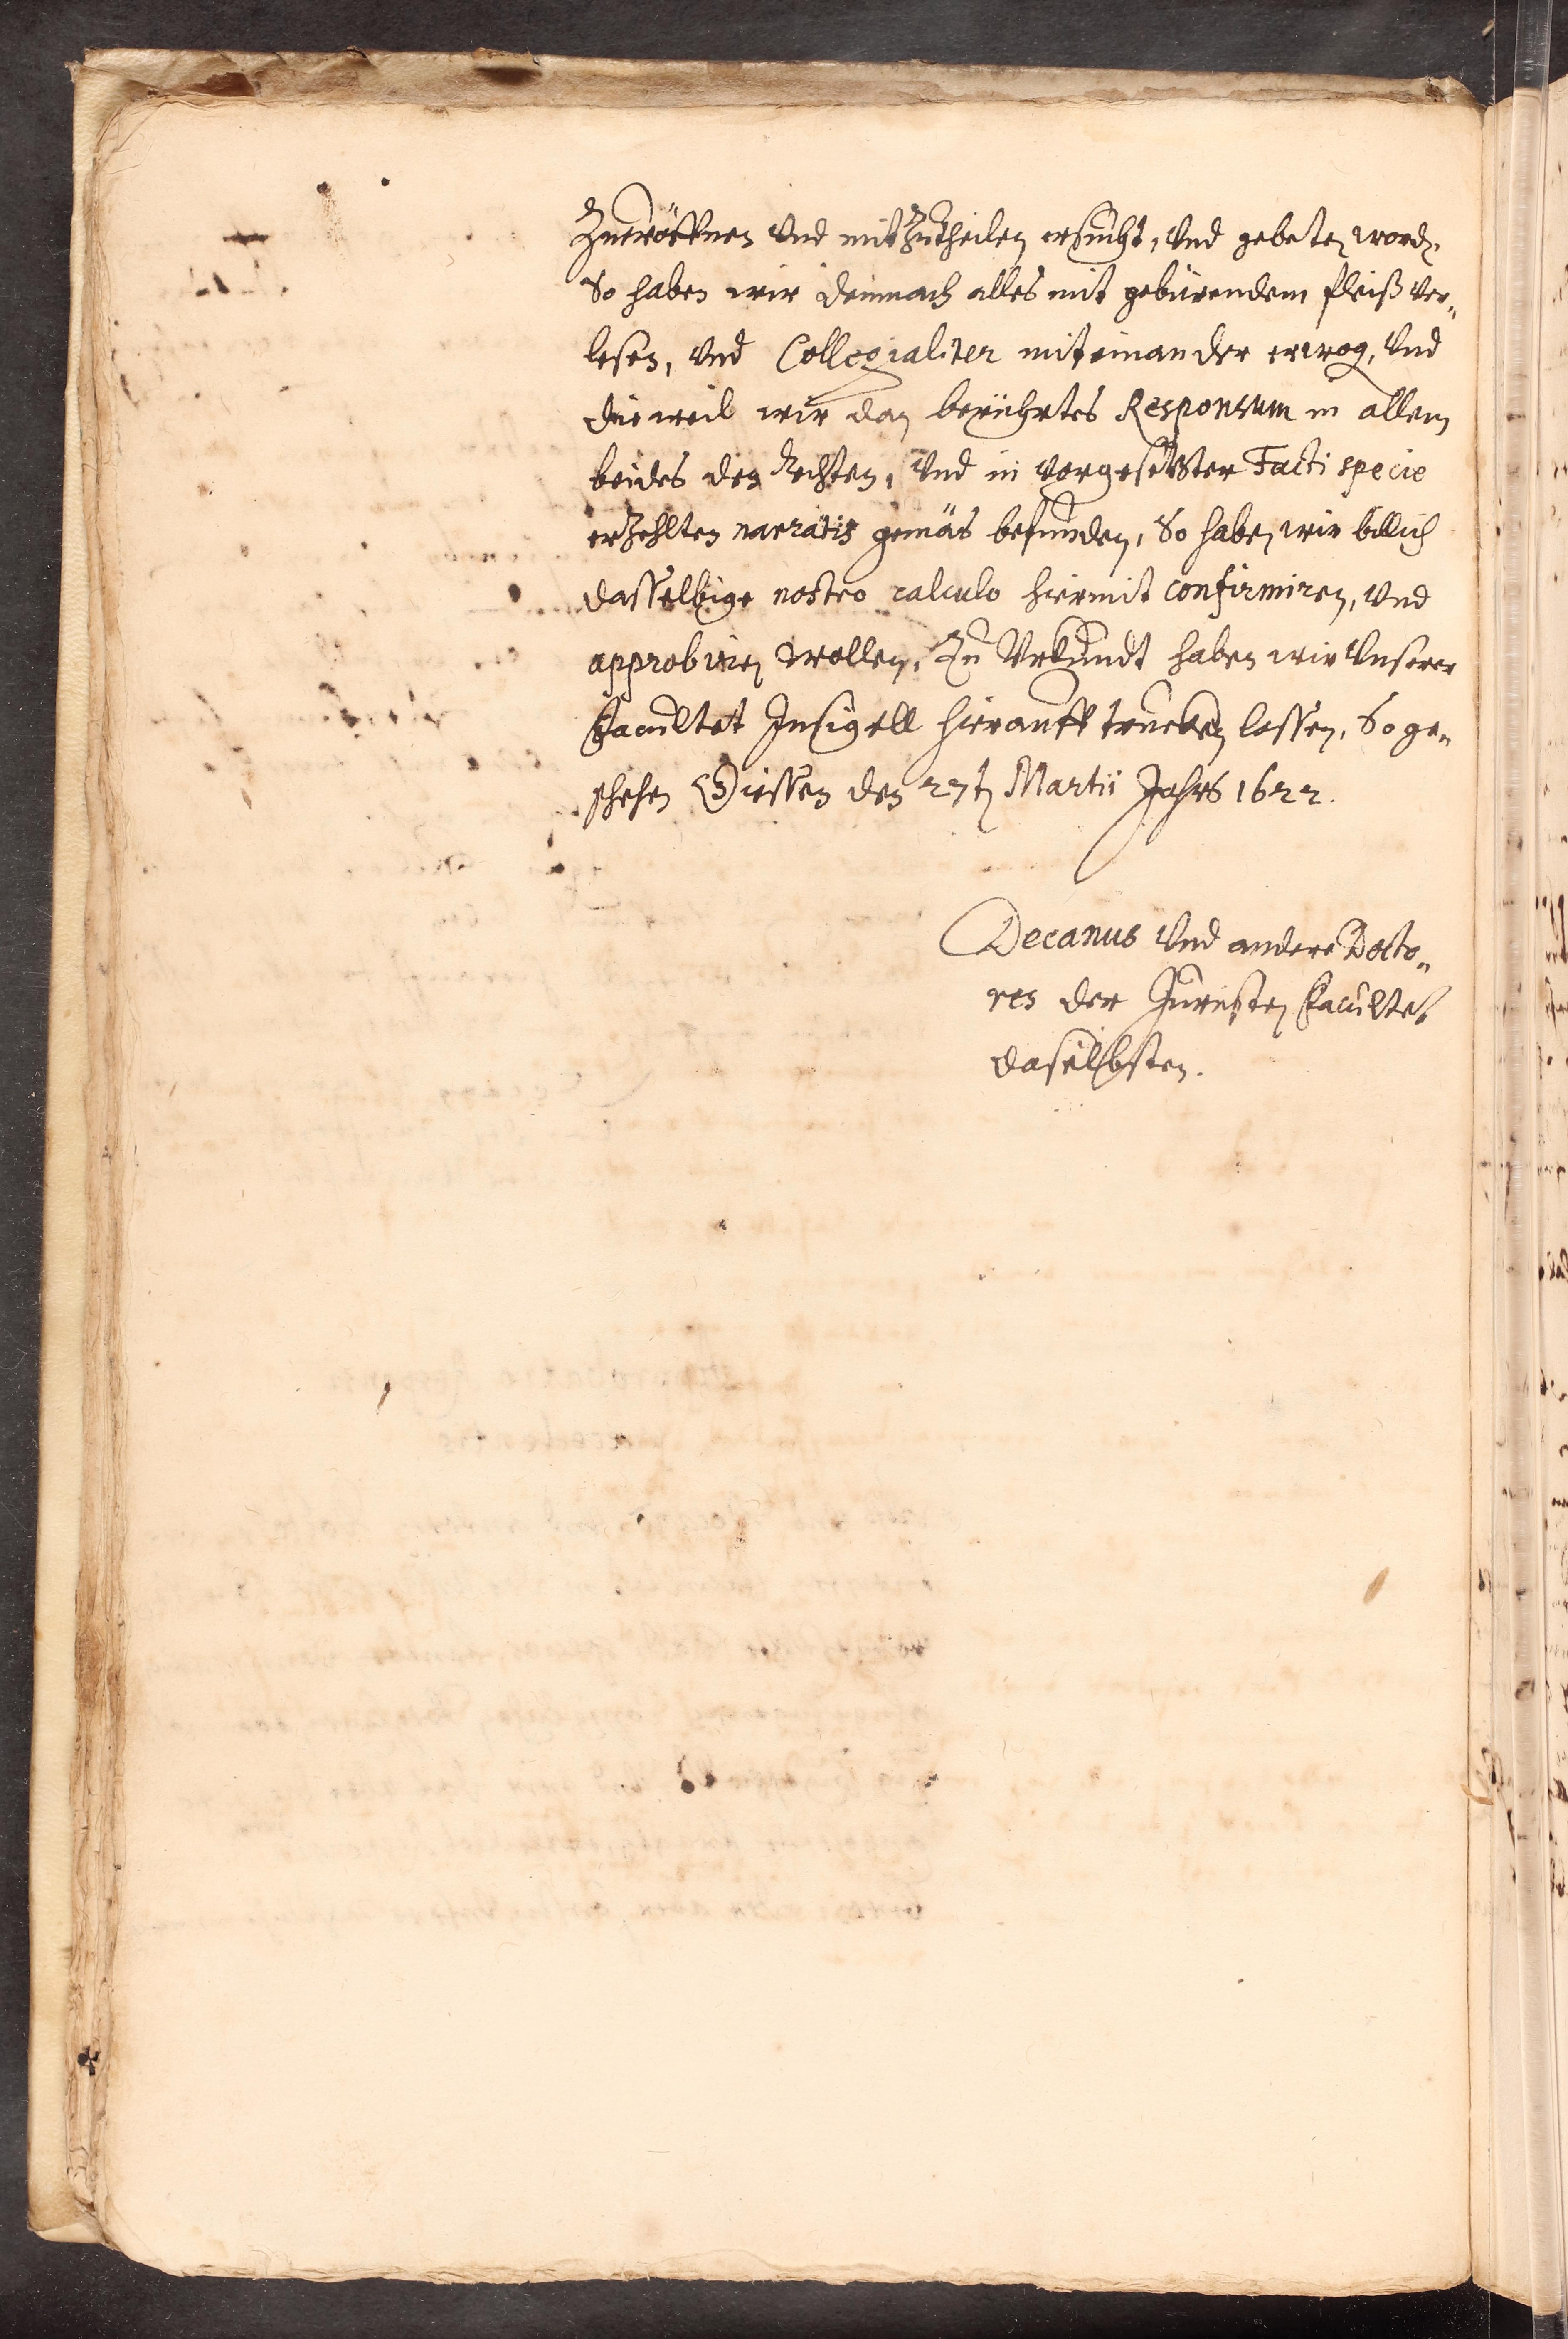 Zueröffnen Vnd mit Zutheilen ersucht, Vnd gebeten word.
So haben wir demnach alles mit gebürendem fleiß ver„
lesen, Vnd Collegialiter miteinander erwog, Vnd
dieweil wir dan berührtes Responsum in allem
beides den Rechten, Vnd in Vorgesetzter Facti specie
erZehlten narratis gemäs befunden, So haben wir billich
dasselbige nostro calculo hiermit confirmiren, Vnd
approbiren wollen, Zu Vrkundt haben wir Vnserer
Facultet Insigell hierauff trucken lassen, So ge„
schehen Giessen den 27t Martii Jahrs 1622.
Decanus Vnd andere Docto„
res der Juristen Facultet
daselbsten.